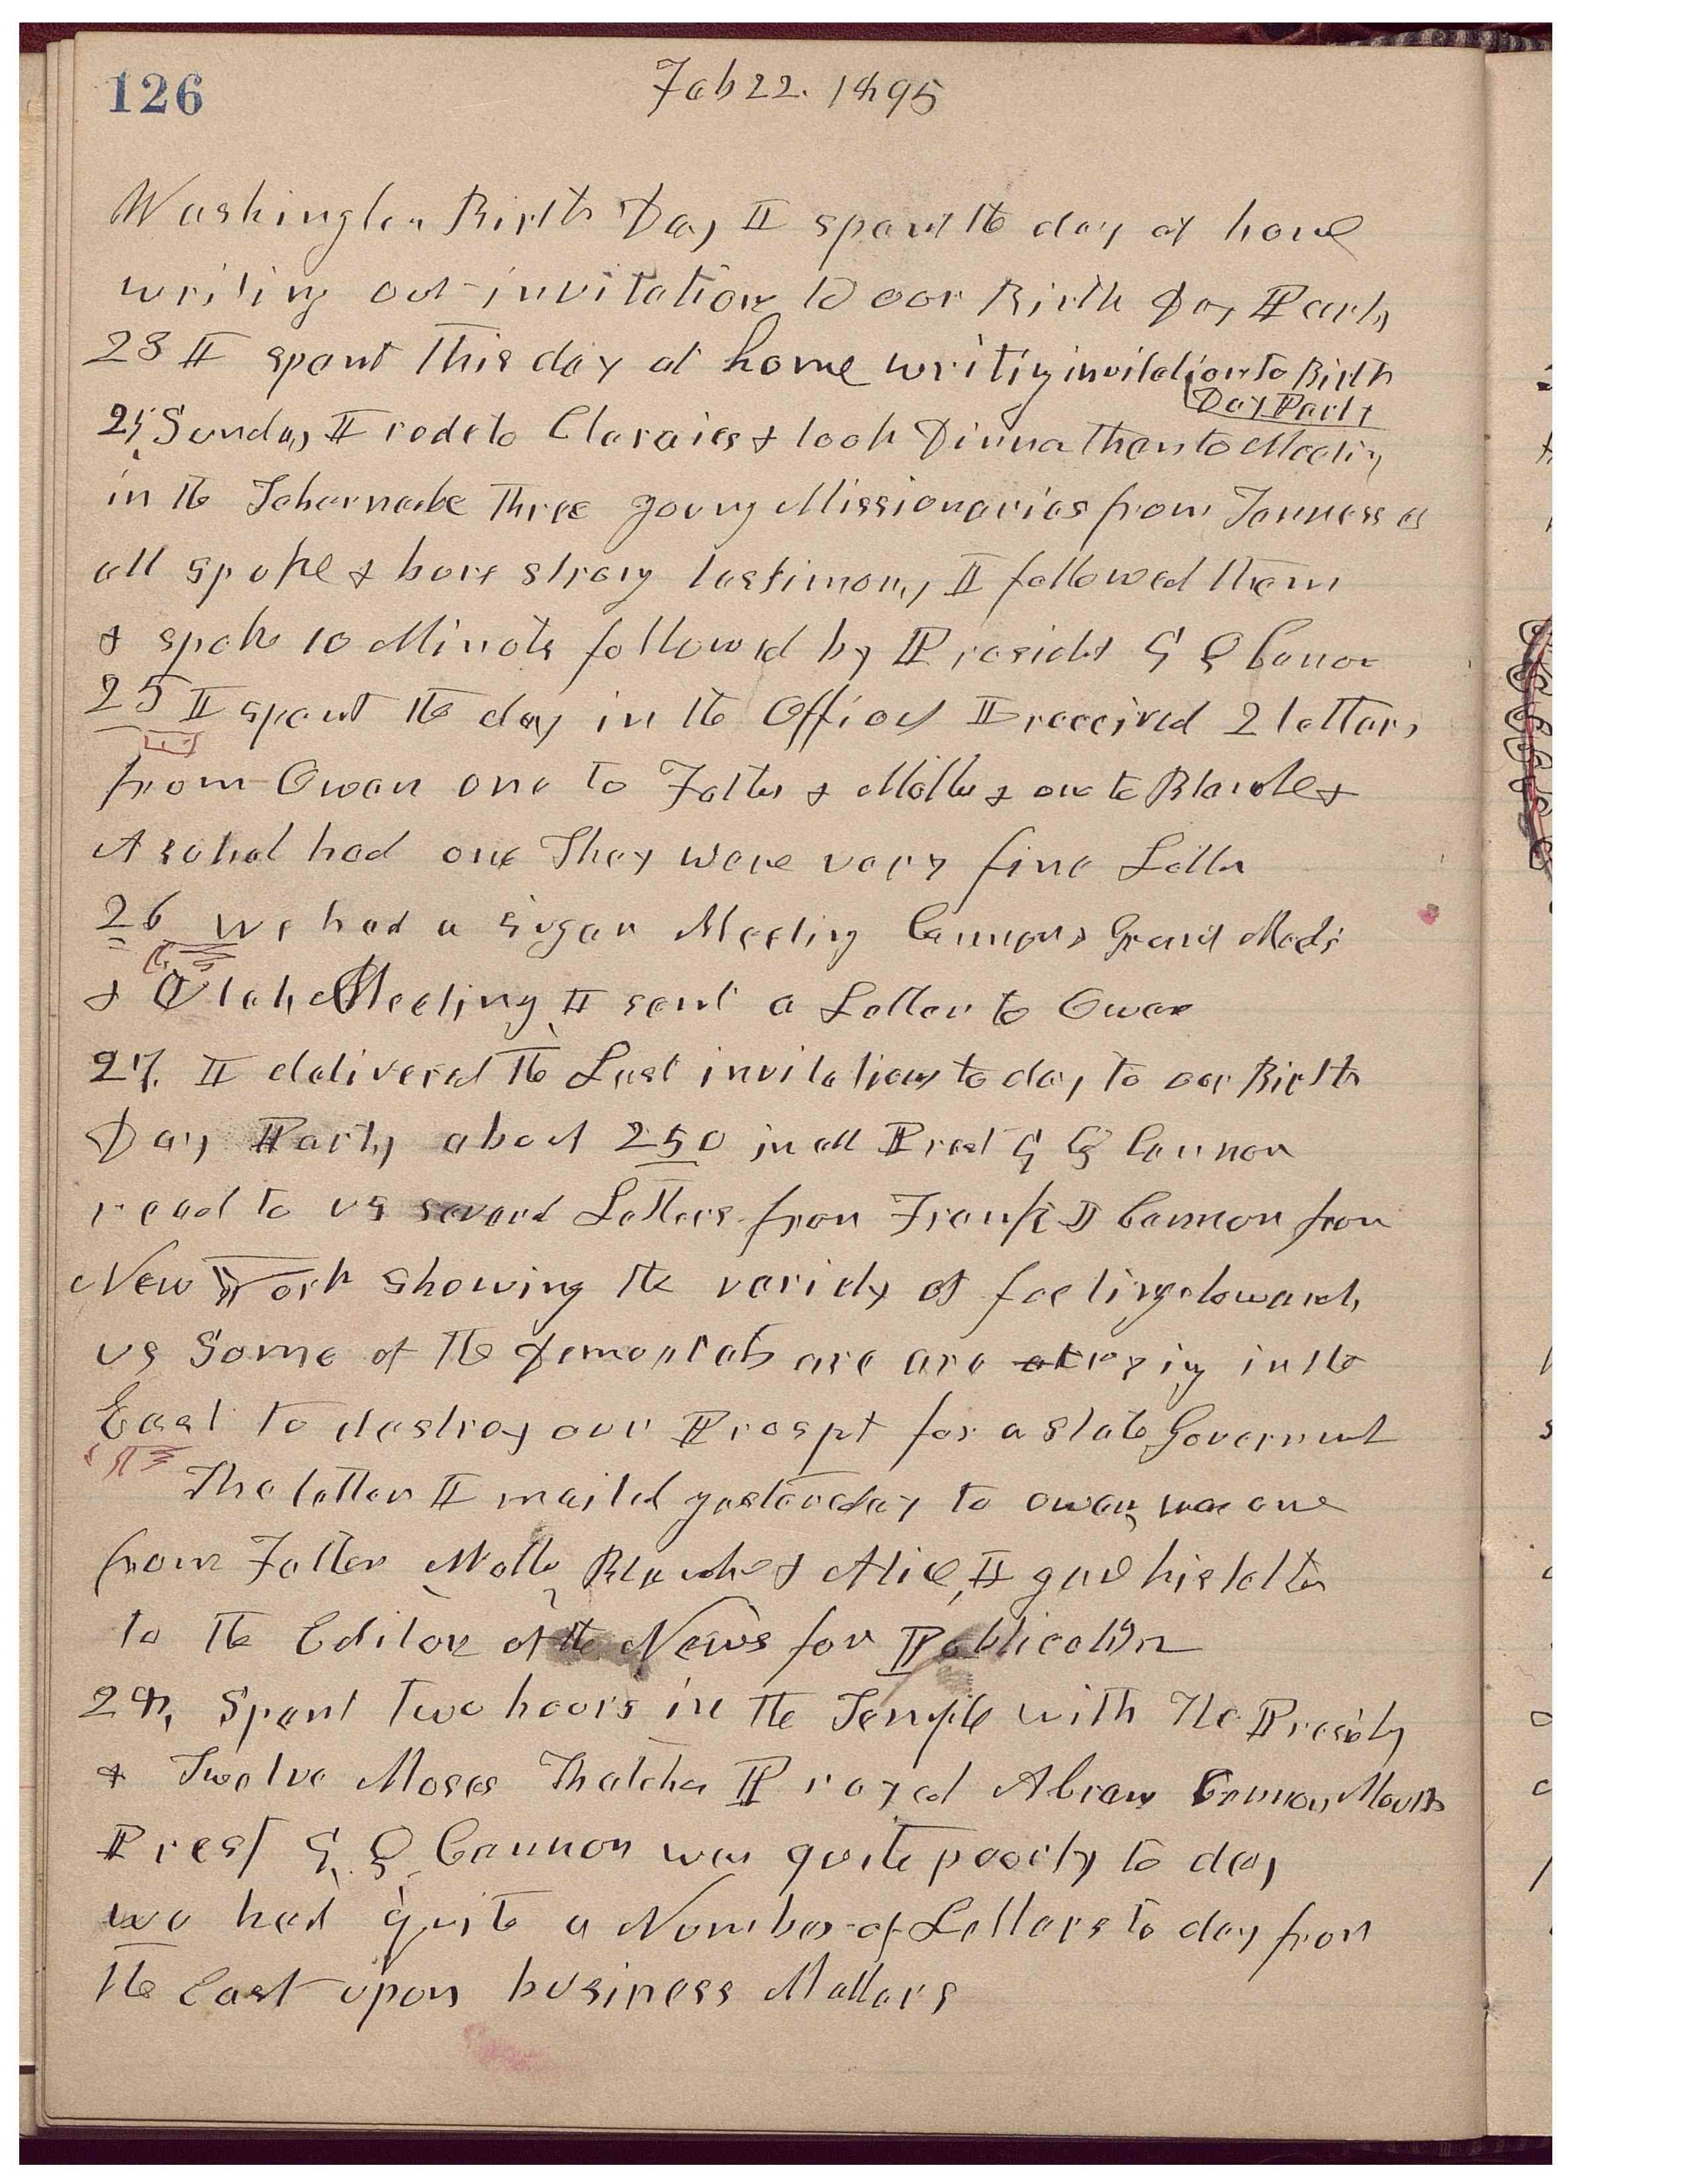 126
Feb 22. 1895
Washington Birth Day I spent the day at home
writing out invitations to our Birth Day Party
23 I spent this day at home writing invitation to Birth
Day Party
24 Sunday I rode to Claras & took Dinner then to Meeting
in the Tabernacle Three young Missionaries from Tennessee
all spoke & bore strong testimony I followed them
& spoke 10 Minuts followed by Presidet G Q Canon
25 I spent the day in the Office I received 2 letters
from Owen one to Father & Mother & one to Blanche &
Asahel had one They were very fine Letter
26 We had a sugar Meeting Cannons Grand Meeti
& Utah Meeting I sent a Letter to Owen
27. I delivered the Last invitations to day to our Birth
Day Party about 250 in all Prest G Q Cannon
read to us several Letters from Frank J Cannon from
New York showing the variety of feelings towards
us Some of the Demoracts are are trying in the
East to destroy our Prospt for a State Governmt
The letter I mailed yesterday to owen was one
from Father Mother Blanche & Alice, I gave his letter
to the Editor of the News for Publication
28, Spent two hours in the Temple with The Presidy
& Twelve Moses Thatcher Prayed Abram Cannon Mouth
Prest G. Q Cannon was quite poorly to day
we had quite a Number of Letters to day from
the East upon business Matters